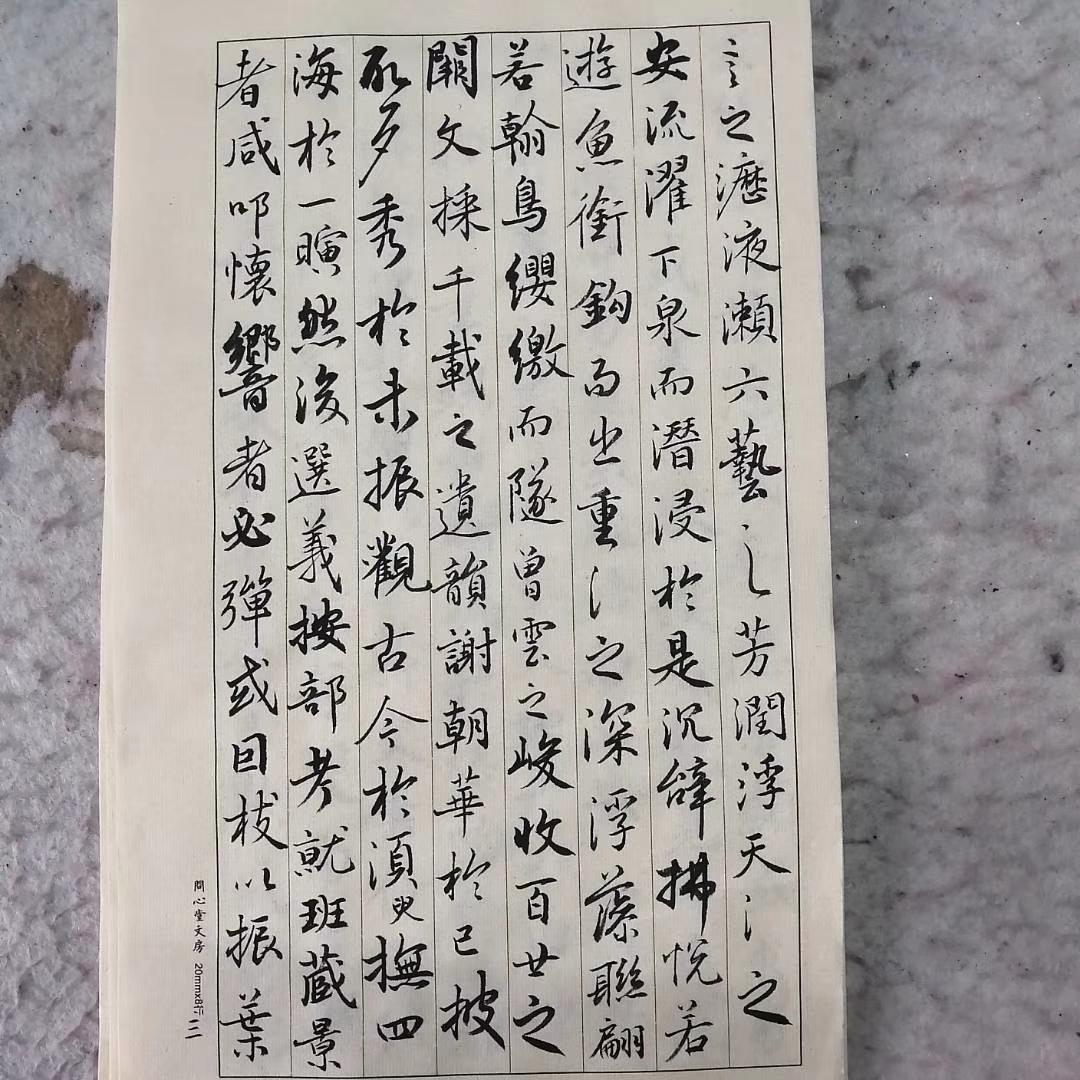 言之瀝液瀨六藝之芳潤浮天之
安流濯下泉而潛浸於是沉辭拂悅若
遊魚銜鈎而出重之深浮藻聯翩
若翰鳥纓繳而隧曾雲之峻收百廿之
闕文採千載之遺韻謝朝華於已披
啟夕秀於未振觀古今於須臾撫四
海於一瞚然後選義按部考就班藏景
者咸叩懷響者必彈或因枝以振葉
問心堂文房 20mmx8行 三